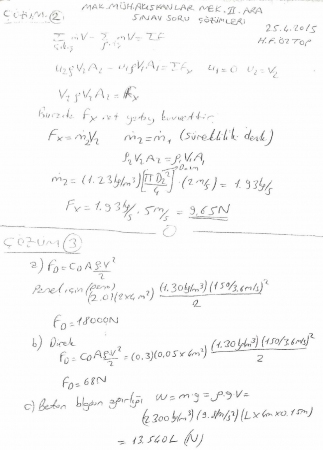 ÇÖZÜM (2) MAK. MÜH. AKIŞKANLAR MEK. II. ARA
SINAV SORU ÇÖZÜMLERİ
25.4.2015
H.F. ÖZTOP
Σ ṁV - Σ ṁV = ΣF
u₂ρV₂A₂ - u₁ρV₁A₁ = ΣFx u₁=0 u₂=V₂
V₂ρV₂A₂ = Fx
Burada Fx net yatay kuvvettir,
Fx = ṁ₂V₂ ṁ₂ = ṁ₁ (süreklilik denk)
ρ₂V₂A₂ = ρ₁V₁A₁
ṁ₂ = (1.23 kg/m³) [πD₂²/4] (2 m/s) = 1.93 kg/s
Fx = 1.93 kg/s . 5 m/s = 9.65 N
ÇÖZÜM (3)
a) F_D = C_D A ρv²/2
Panel için (pano)
(2.0)(2x4 m²) (1.30 kg/m³)(150/3.6 m/s)²/2
F_D = 18000 N
b) Direk
F_D = C_D A ρv²/2 = (0.3)(0.05x4 m²) (1.30 kg/m³)(150/3.6 m/s)²/2
F_D = 68 N
c) Beton bloğun ağırlığı W = mg = ρgV =
(2300 kg/m³)(9.81 m/s²)(L x 4m x 0.15m)
= 13.540 L (N)